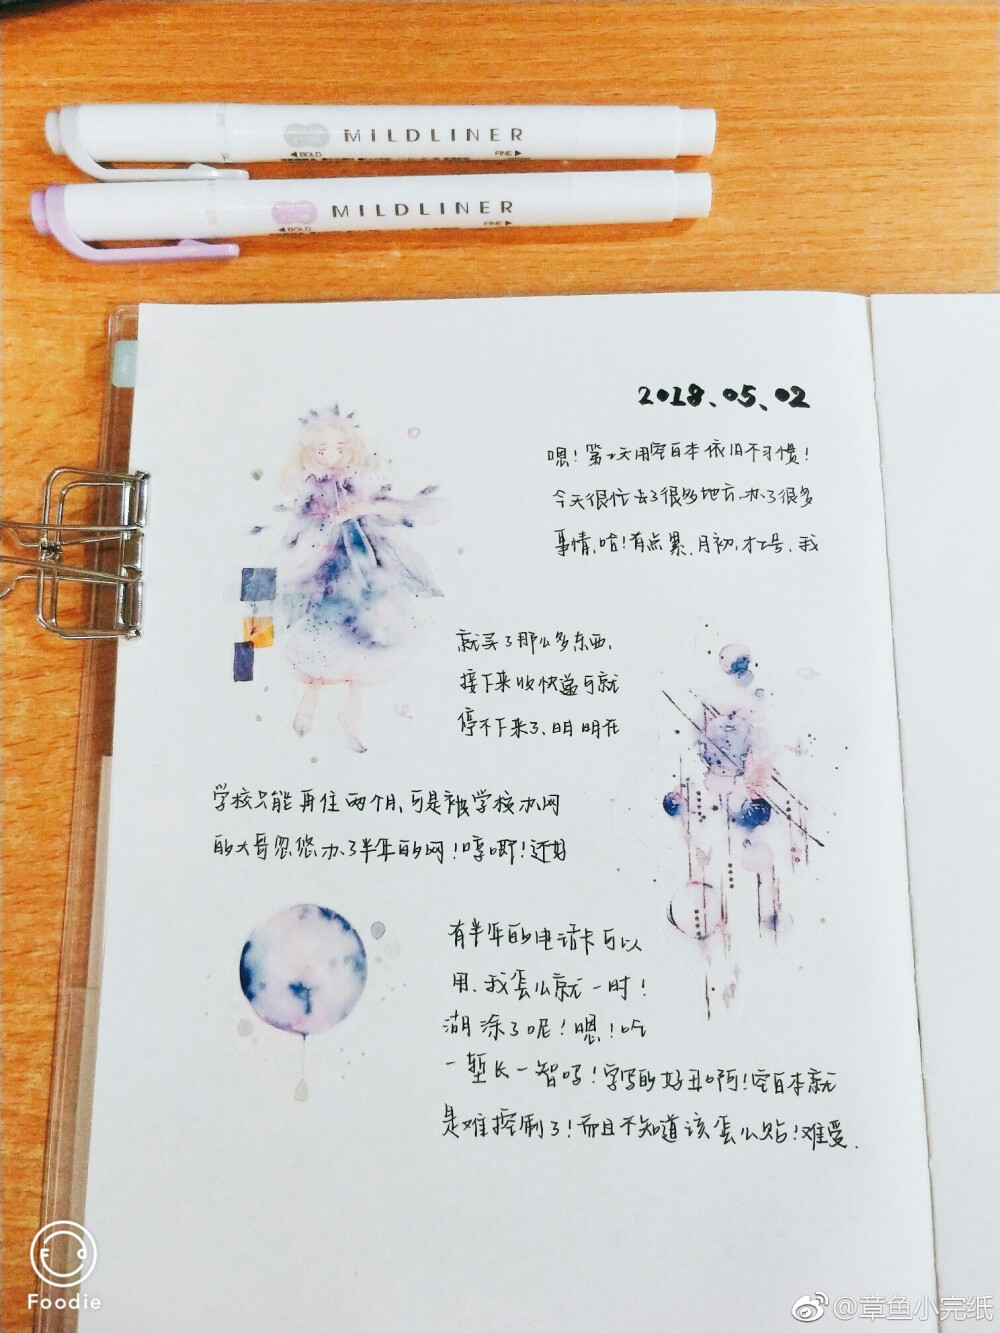 MiLDLiNER
◀BOLD
FINE▶
MiLDLiNER
◀BOLD
FINE▶
2018、05、02
嗯！第2天用空白本依旧不习惯！
今天很忙去了很多地方、办了很多
事情、哈！有点累、月初、才2号、我
就买了那么多东西、
接下来收快递可就
停不下来了、明明在
学校只能再住两个月、可是被学校办网
的大哥忽悠办了半年的网！哼唧！还好
有半年的电话卡可以
用、我怎么就一时！
湖涂了呢！嗯！吃
一堑长一智吗！字写的好丑啊！空白本就
是难控制了！而且不知道该怎么贴！难受、
Foodie
@章鱼小完纸